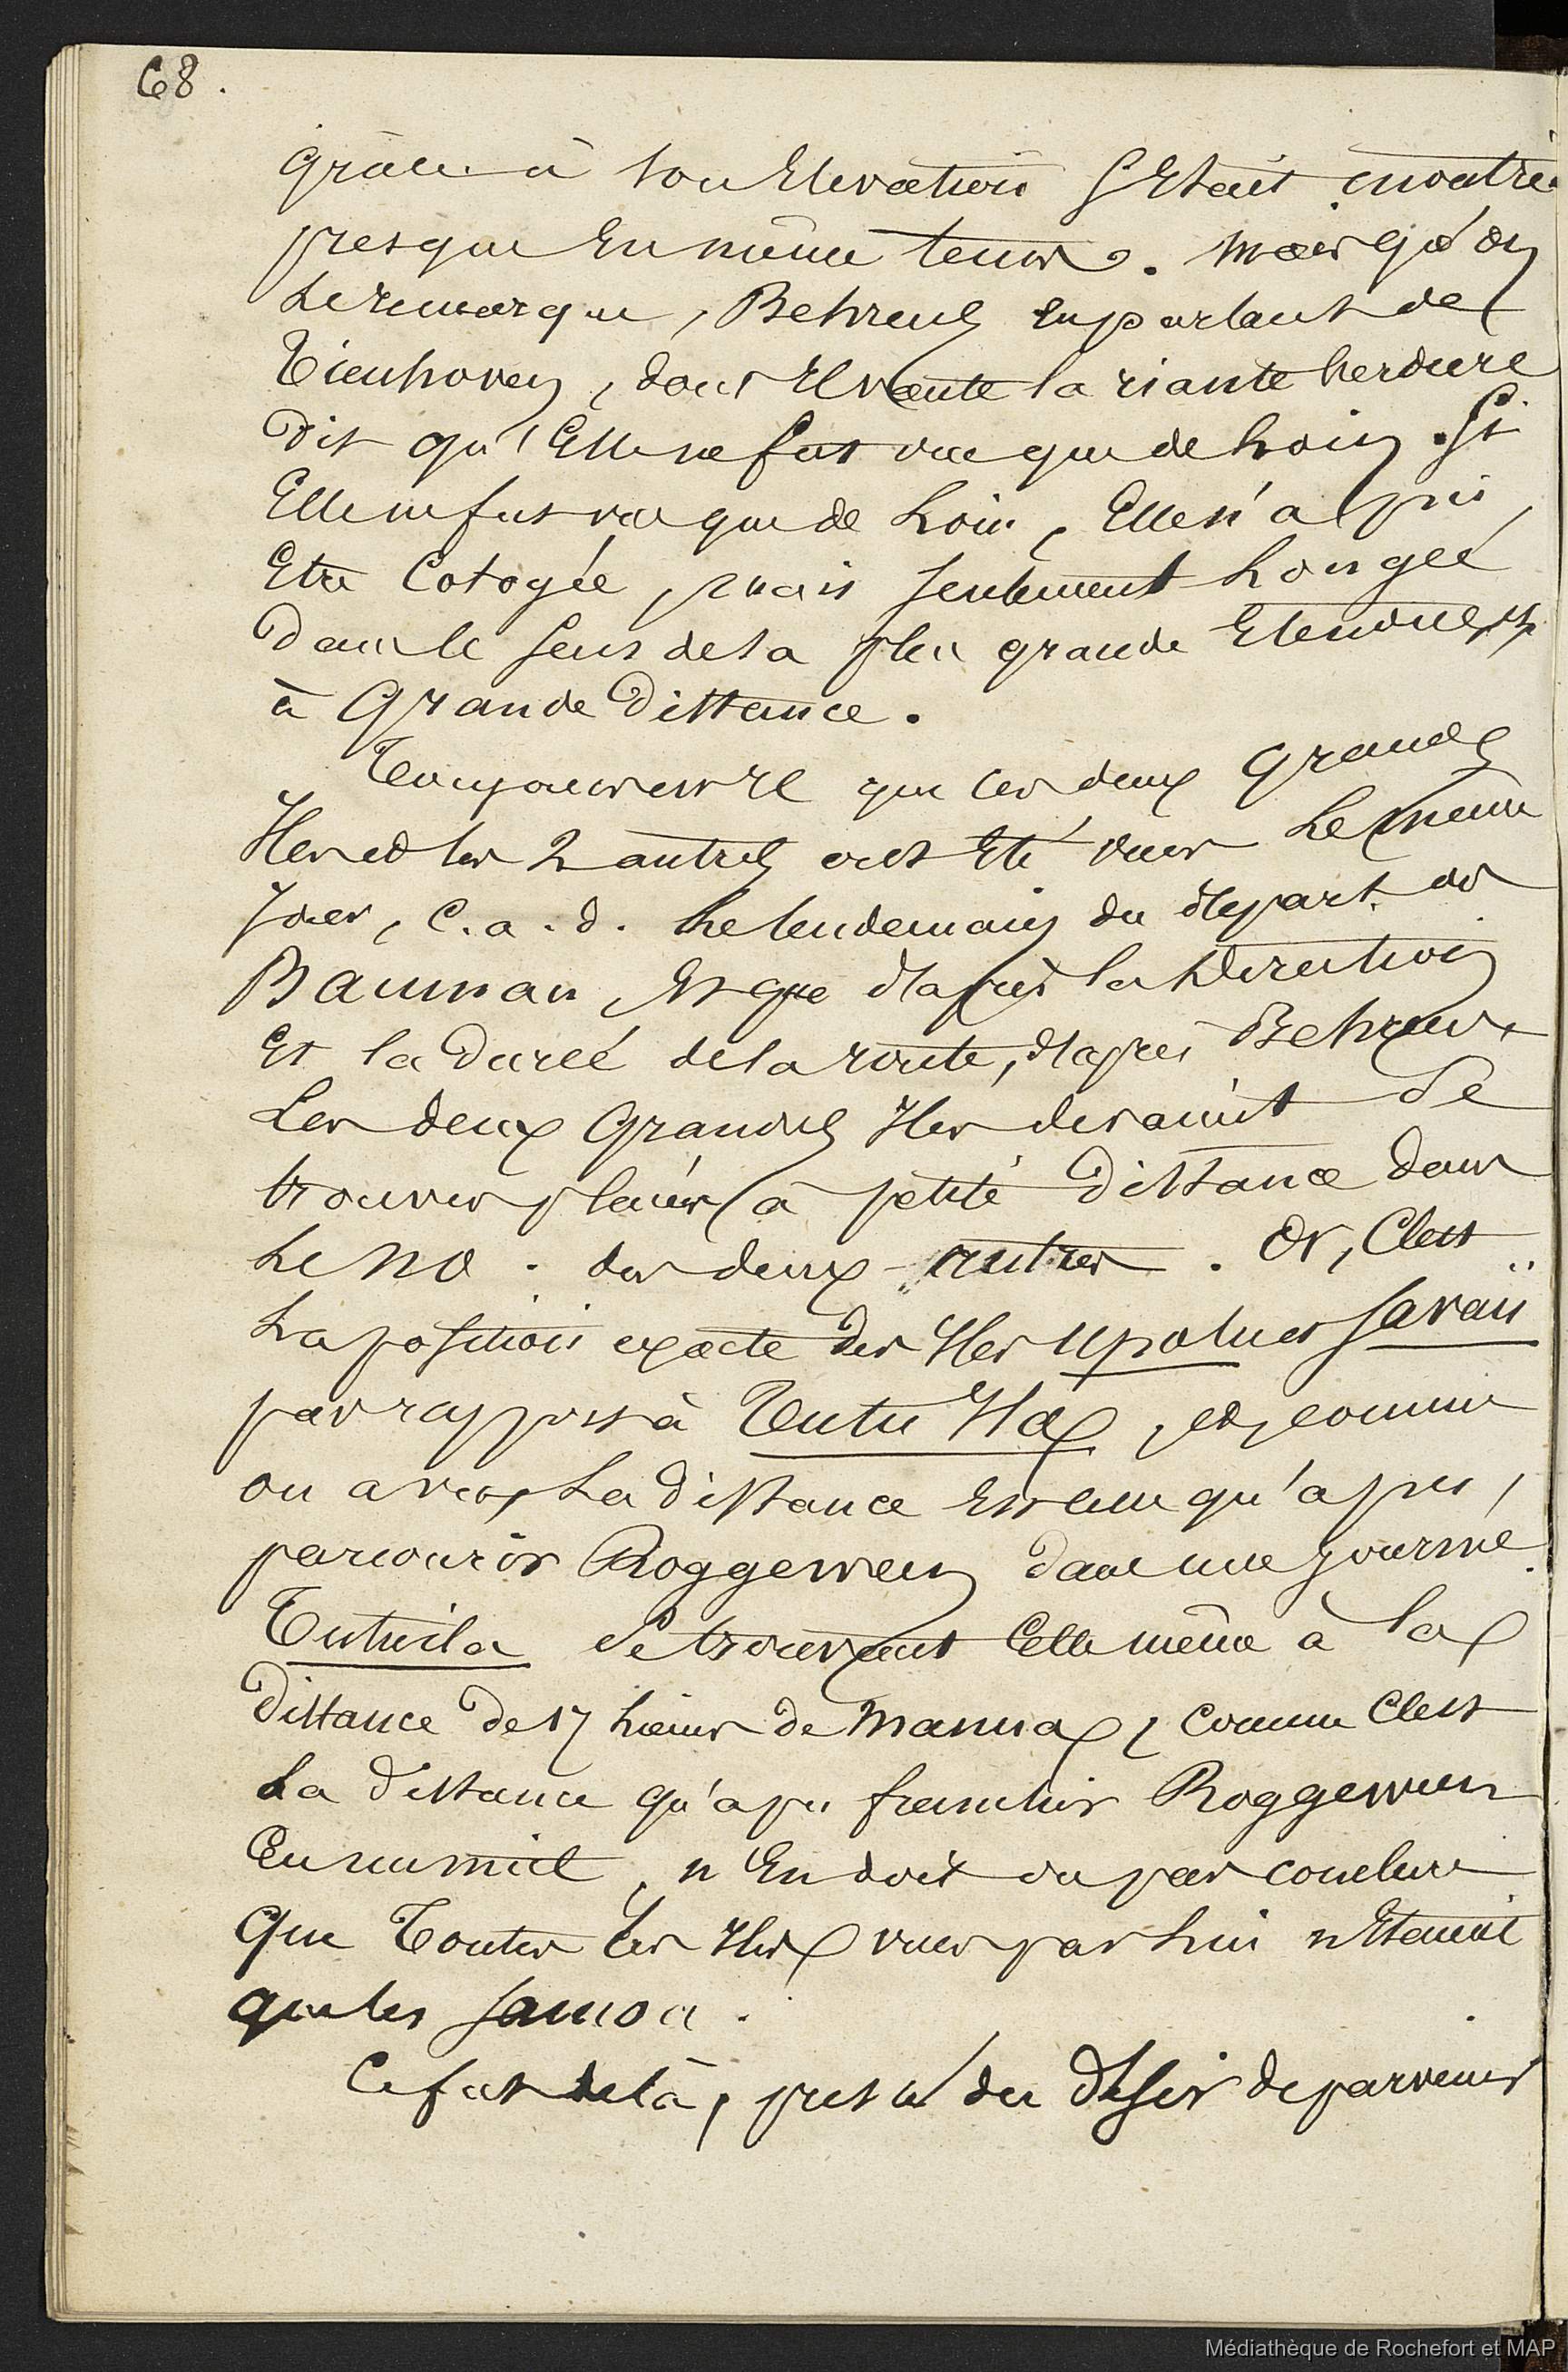 68.
grâce à son Elevation s'Etait montré
presque En même tems. Mais qu'on
Le remarque, Behrens en parlant de
Tienhoven, dont Il vante la riante verdure
Dit qu'Elle ne fut vue que de Loin. Si
Elle ne fut vue que de Loin, Elle n'a pu
Etre Cotoyée, mais seulement Longée
Dans le sens de sa plus grande Etendue, et
à Grande Distance.
Toujours est Il que ces deux grandes
Iles et les 2 autres ont Eté vues Le même
Jour, C.a.d. Le lendemain du départ de
Bauman, et que d'après la Direction
Et la Durée de la route, d'après Behrens
Les deux Grandes Iles devaient Se
trouver placées à petite Distance dans
Le NO. des deux autres. Or, C'est
La position exacte des Iles Upolu et Savaii
par rapport à Tutu Ila, et, comme
on a vu, La distance Est celle qu'a pu,
parcourir Roggeween dans une journée.
Tutuila Se trouvant Elle même à la
distance de 17 lieues de Manua, comme C'est
La distance qu'a pu franchir Roggeween
En une nuit, n'En doit on pas conclure
Que Toutes les Iles vues par Lui n'Etaient
que les Samoa.
Ce fut de là, pressé du désir de parvenir
Médiathèque de Rochefort et MAP